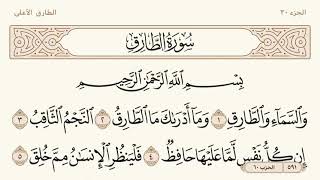 الطارق الأعلى
الجزء ٣٠
سُورَةُ الطَّارِقِ
بِسْمِ اللَّهِ الرَّحْمَٰنِ الرَّحِيمِ
وَالسَّمَاءِ وَالطَّارِقِ ١ وَمَا أَدْرَىٰكَ مَا الطَّارِقُ ٢ النَّجْمُ الثَّاقِبُ ٣
إِن كُلُّ نَفْسٍ لَّمَّا عَلَيْهَا حَافِظٌ ٤ فَلْيَنظُرِ الْإِنسَٰنُ مِمَّ خُلِقَ ٥
٥٩١ الحزب ٦٠